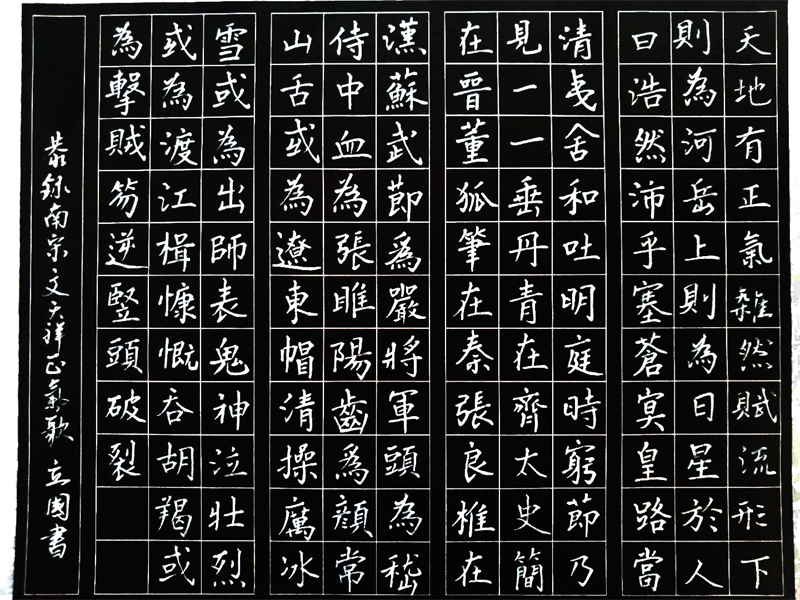 天地有正氣雜然賦流形下
則為河岳上則為日星於人
曰浩然沛乎塞蒼冥皇路當
清夷舍和吐明庭時窮節乃
見一一垂丹青在齊太史簡
在晉董狐筆在秦張良椎在
漢蘇武節爲嚴將軍頭為嵇
侍中血為張睢陽齒爲顏常
山舌或為遼東帽清操厲冰
雪或為出師表鬼神泣壯烈
或為渡江楫慷慨吞胡羯或
為擊賊笏逆豎頭破裂
恭錄南宋文天祥正氣歌 立國書